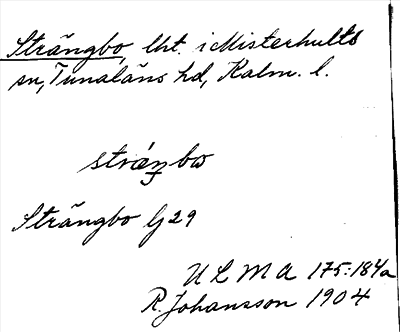 Strängbo, lht. i Misterhults
sn, Tunaläns hd, Kalm. l.
Strängbo lj 29
U L M A 175:184a
R. Johansson 1904